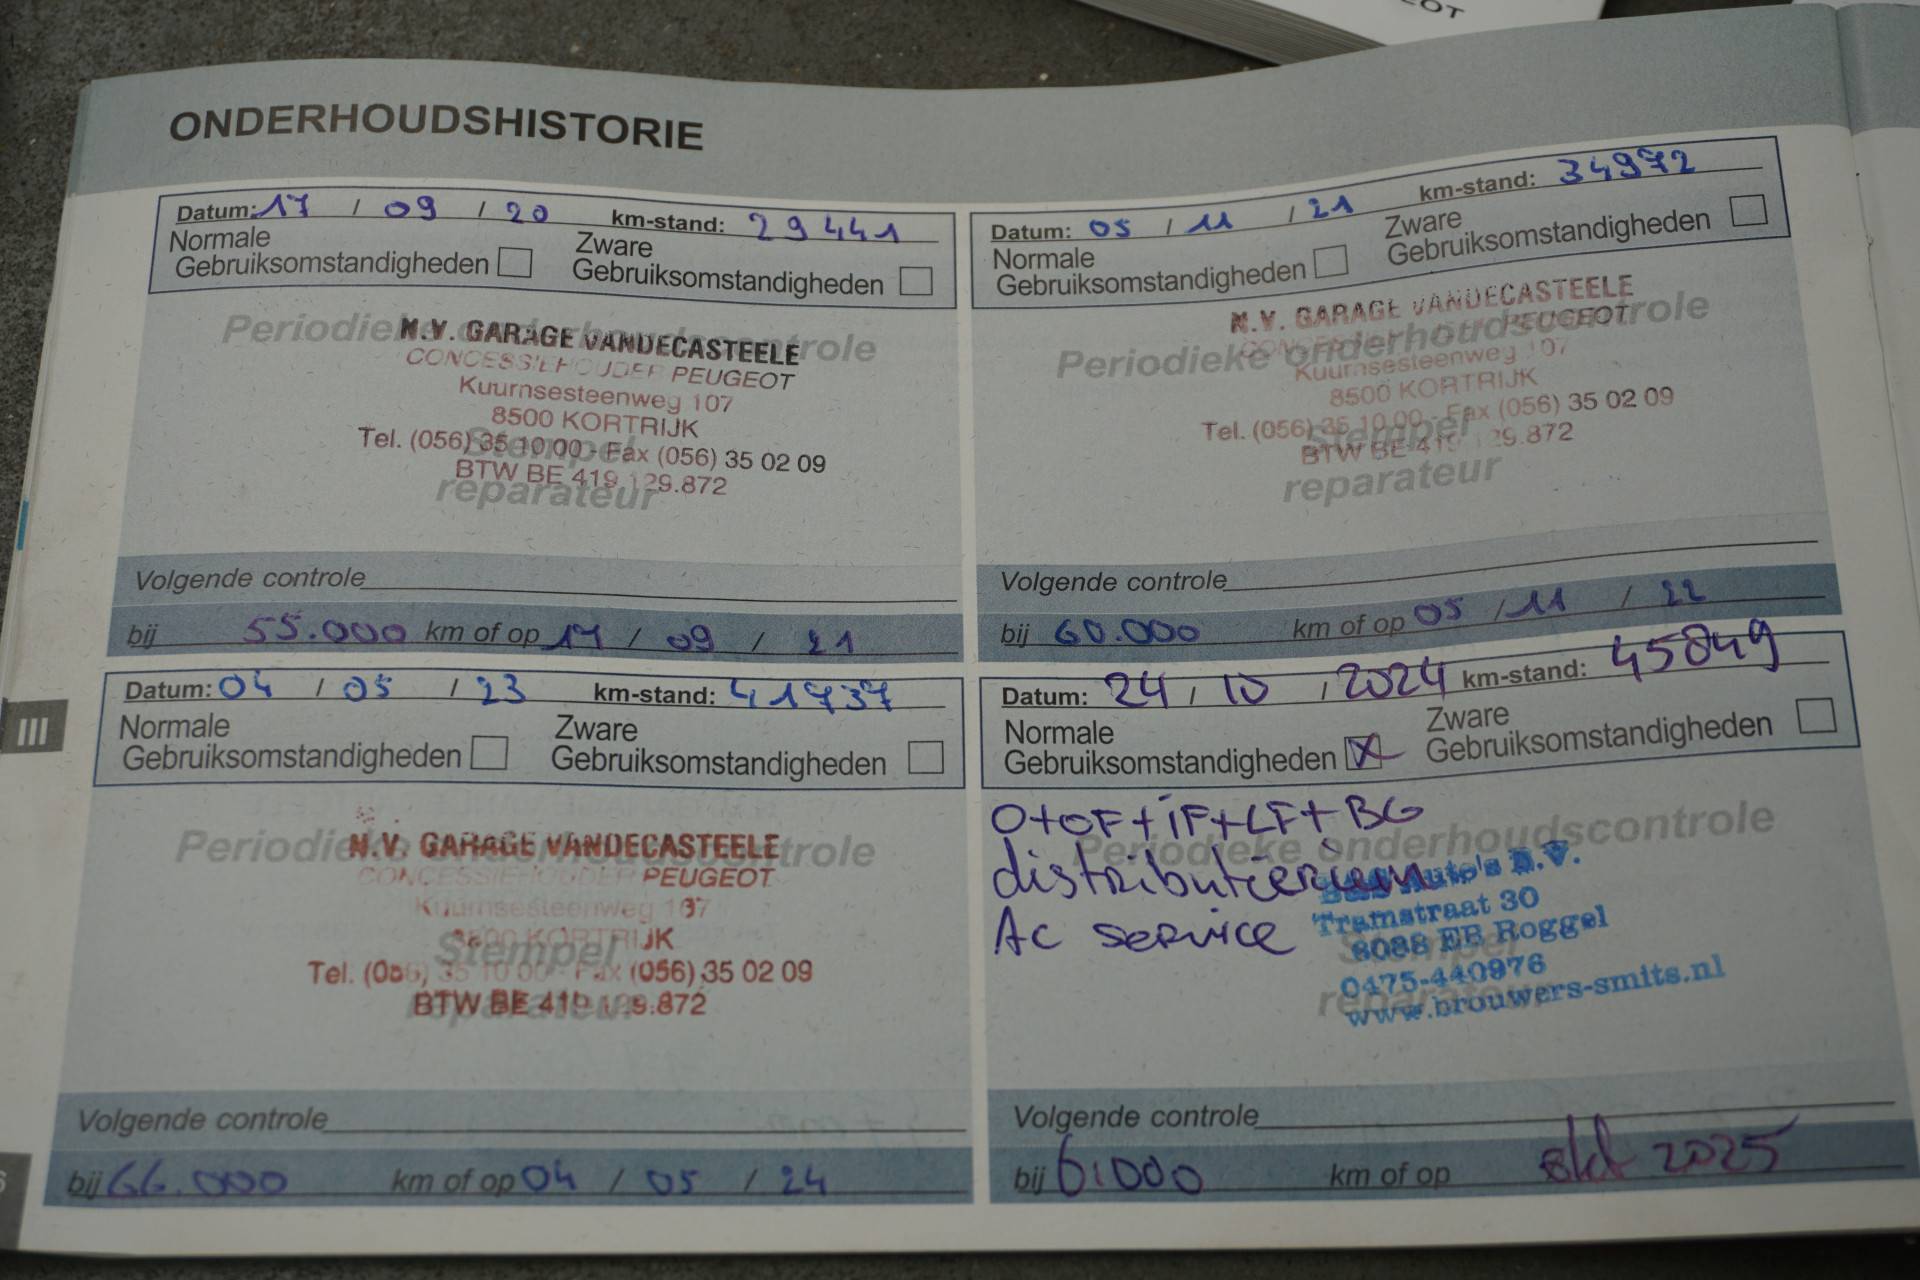 ONDERHOUDSHISTORIE
Datum: 17 / 09 / 20 km-stand: 29441
Normale Gebruiksomstandigheden Zware Gebruiksomstandigheden
Periodieke onderhoudscontrole
N.V. GARAGE VANDECASTEELE
CONCESSIEHOUDER PEUGEOT
Kuurnsesteenweg 107
8500 KORTRIJK
Tel. (056) 35 10 00 - Fax (056) 35 02 09
BTW BE 419.129.872
Stempel
reparateur
Volgende controle
bij 55.000 km of op 17 / 09 / 21
Datum: 05 / 11 / 21 km-stand: 34972
Normale Gebruiksomstandigheden Zware Gebruiksomstandigheden
Periodieke onderhoudscontrole
N.V. GARAGE VANDECASTEELE
PEUGEOT
Kuurnsesteenweg 107
8500 KORTRIJK
Tel. (056) 35 10 00 - Fax (056) 35 02 09
BTW BE 419.129.872
Stempel
reparateur
Volgende controle
bij 60.000 km of op 05 / 11 / 22
III
Datum: 04 / 05 / 23 km-stand: 41737
Normale Gebruiksomstandigheden Zware Gebruiksomstandigheden
Periodieke onderhoudscontrole
N.V. GARAGE VANDECASTEELE
CONCESSIEHOUDER PEUGEOT
Kuurnsesteenweg 107
8500 KORTRIJK
Tel. (056) 35 10 00 - Fax (056) 35 02 09
BTW BE 419.129.872
Stempel
reparateur
Volgende controle
bij 66.000 km of op 04 / 05 / 24
Datum: 24 / 10 / 2024 km-stand: 45849
Normale Gebruiksomstandigheden X Zware Gebruiksomstandigheden
O+OF+iF+LF+BG
Periodieke onderhoudscontrole
distributieriem
Auto's B.V.
Ac service
Tramstraat 30
8088 EB Roggel
0475-440976
www.brouwers-smits.nl
Stempel
reparateur
Volgende controle
bij 61000 km of op okt 2025